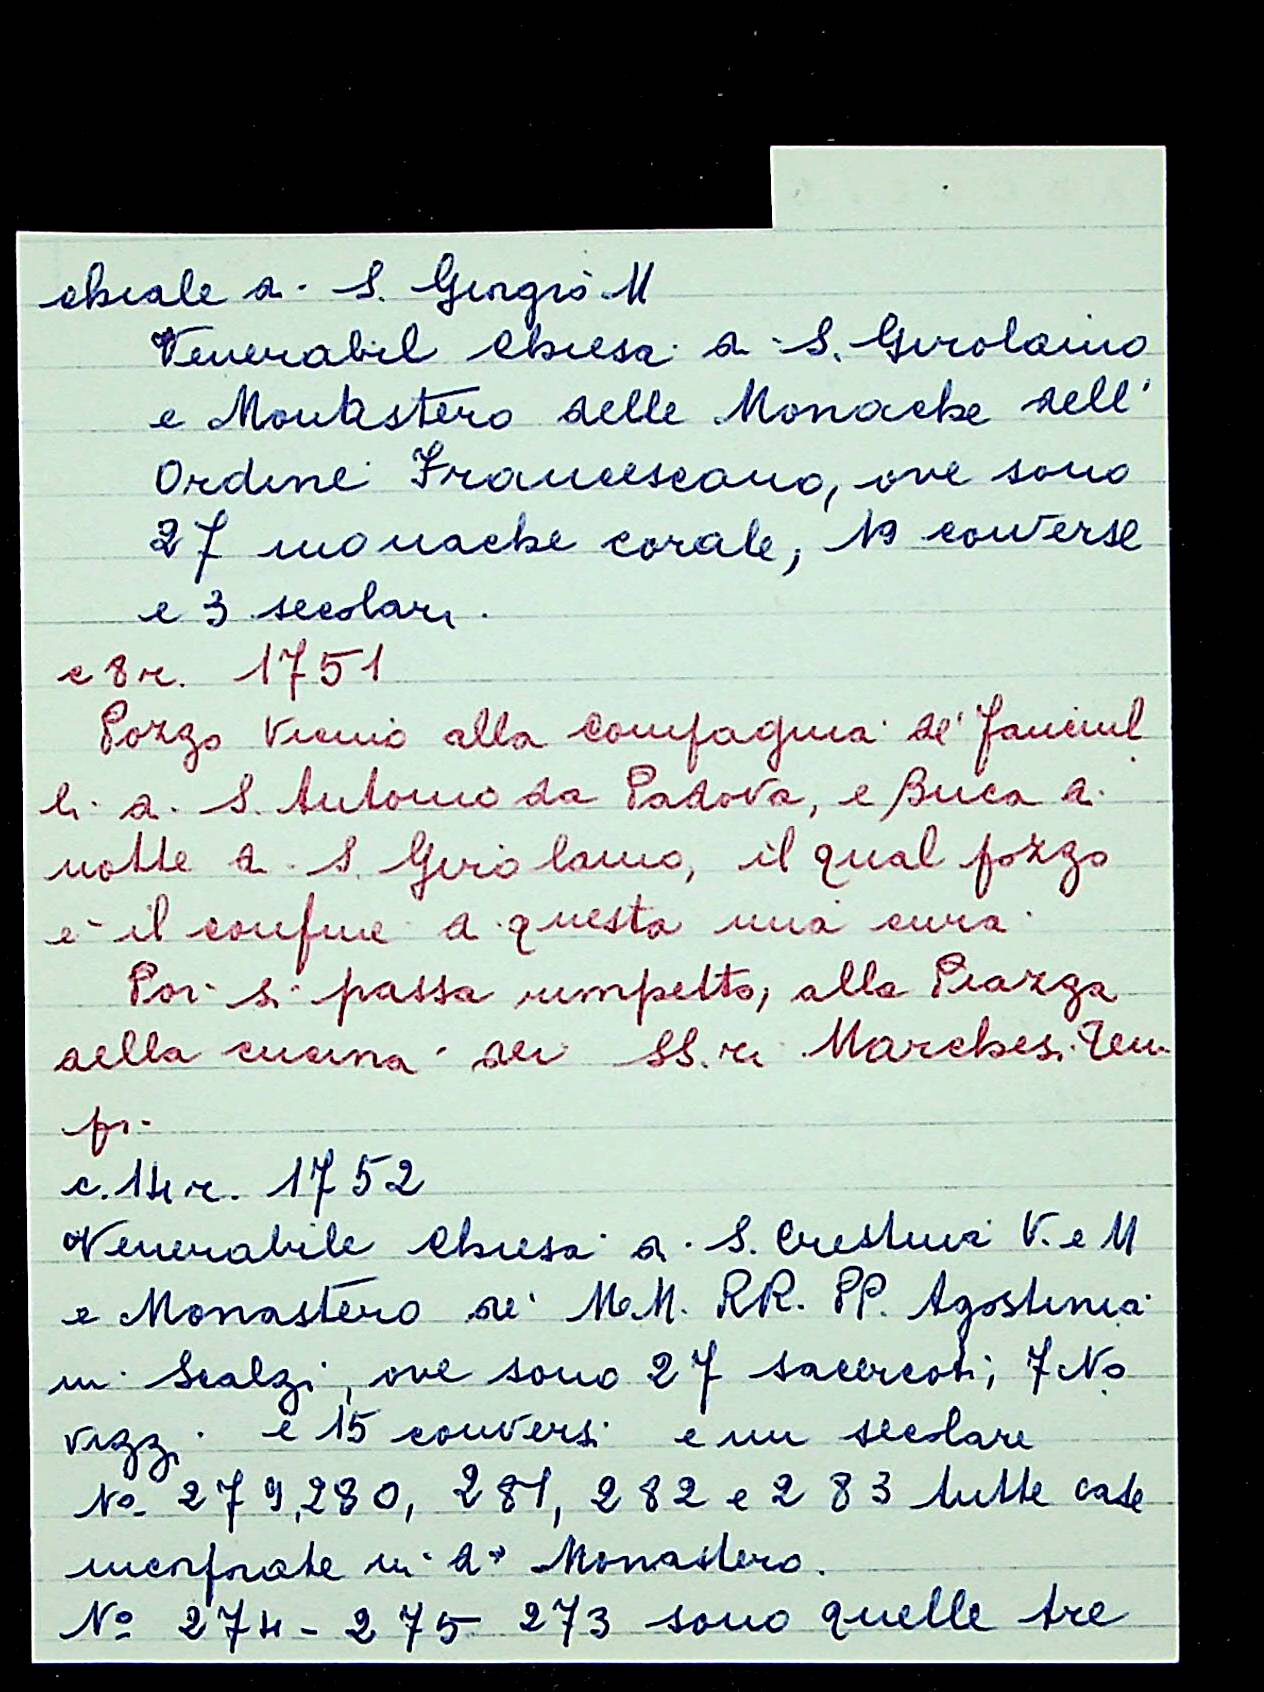 chiale di S. Giorgio M
Venerabil Chiesa di S. Girolamo
e Monastero delle Monache dell'
Ordine Francescano, ove sono
27 monache corale, 19 converse
e 3 secolari.
c 8 r. 1751
Pozzo vicino alla Compagnia de' fanciul
li di S. Antonio da Padova, e Buca di
notte di S. Girolamo, il qual pozzo
e il confine di questa mia cura
Poi si passa rimpetto, alla Piazza
della cucina dei SS.ri Marchesi Tem
pi.
c. 14 r. 1752
Venerabile Chiesa di S. Crestina V. e M
e Monastero de' M.M. RR. PP. Agostinia
ni Scalzi, ove sono 27 sacercoti, 7 No
vizzi e 15 conversi e un secolare
Nº 279, 280, 281, 282 e 283 tutte case
incorporate in do Monastero.
Nº 274 - 275 273 sono quelle tre